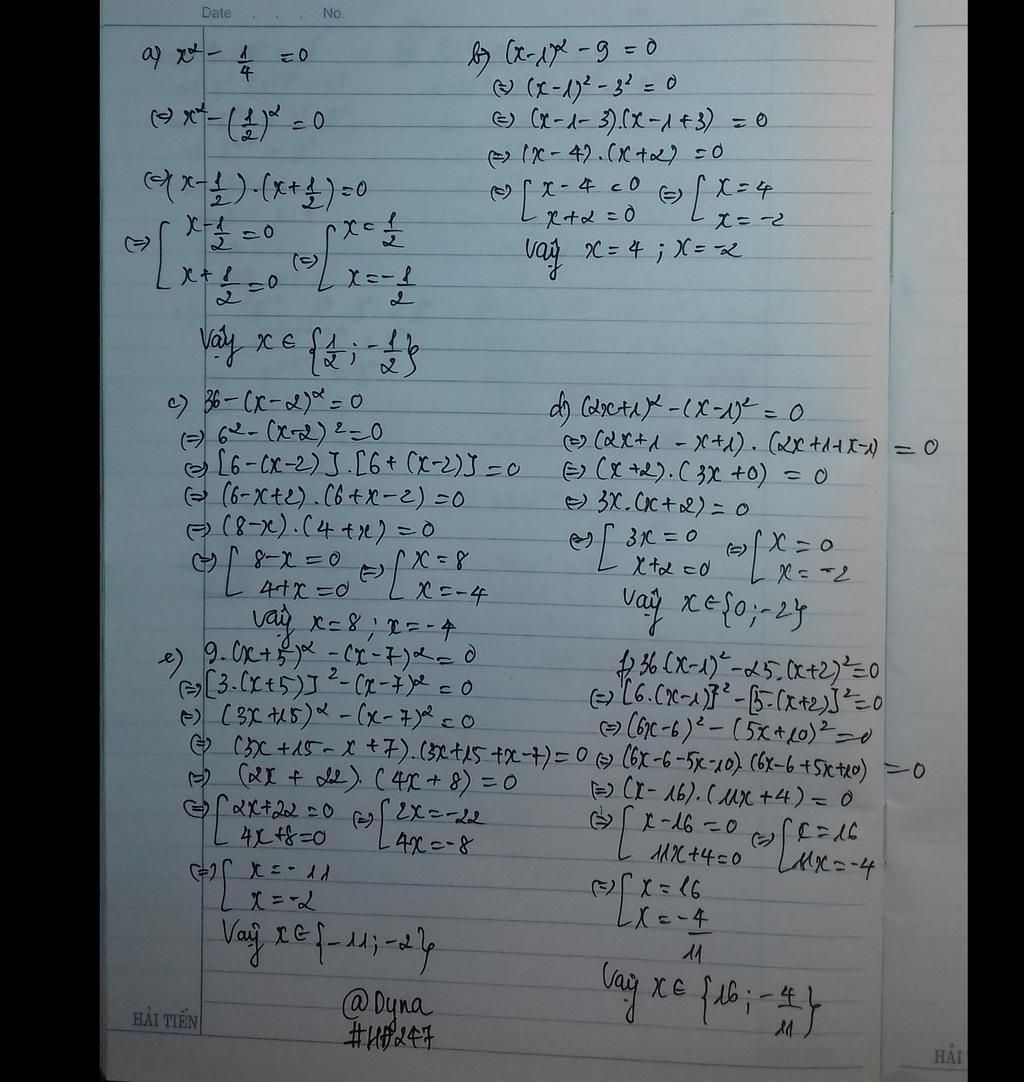 Date . . . No.
a) x² - 1/4 = 0
⇔ x² - (1/2)² = 0
⇔ (x - 1/2).(x + 1/2) = 0
⇔ [ x - 1/2 = 0 ⇔ [ x = 1/2
x + 1/2 = 0 x = -1/2
Vậy x ∈ {1/2 ; -1/2}
b) (x-1)² - 9 = 0
⇔ (x-1)² - 3² = 0
⇔ (x-1-3).(x-1+3) = 0
⇔ (x-4).(x+2) = 0
⇔ [ x-4 = 0 ⇔ [ x = 4
x+2 = 0 x = -2
Vậy x = 4 ; x = -2
c) 36 - (x-2)² = 0
⇔ 6² - (x-2)² = 0
⇔ [6-(x-2)].[6+(x-2)] = 0
⇔ (6-x+2).(6+x-2) = 0
⇔ (8-x).(4+x) = 0
⇔ [ 8-x = 0 ⇔ [ x = 8
4+x = 0 x = -4
Vậy x = 8 ; x = -4
d) (2x+1)² - (x-1)² = 0
⇔ (2x+1 - x+1).(2x+1+x-1) = 0
⇔ (x+2).(3x+0) = 0
⇔ 3x.(x+2) = 0
⇔ [ 3x = 0 ⇔ [ x = 0
x+2 = 0 x = -2
Vậy x ∈ {0 ; -2}
e) 9.(x+5)² - (x-7)² = 0
⇔ [3.(x+5)]² - (x-7)² = 0
⇔ (3x+15)² - (x-7)² = 0
⇔ (3x+15-x+7).(3x+15+x-7) = 0
⇔ (2x+22).(4x+8) = 0
⇔ [ 2x+22 = 0 ⇔ [ 2x = -22
4x+8 = 0 4x = -8
⇔ [ x = -11
x = -2
Vậy x ∈ {-11 ; -2}
f) 36.(x-1)² - 25.(x+2)² = 0
⇔ [6.(x-1)]² - [5.(x+2)]² = 0
⇔ (6x-6)² - (5x+10)² = 0
⇔ (6x-6-5x-10).(6x-6+5x+10) = 0
⇔ (x-16).(11x+4) = 0
⇔ [ x-16 = 0 ⇔ [ x = 16
11x+4 = 0 11x = -4
⇔ [ x = 16
x = -4/11
Vậy x ∈ {16 ; -4/11}
@Dyna
HẢI TIẾN
HẢI